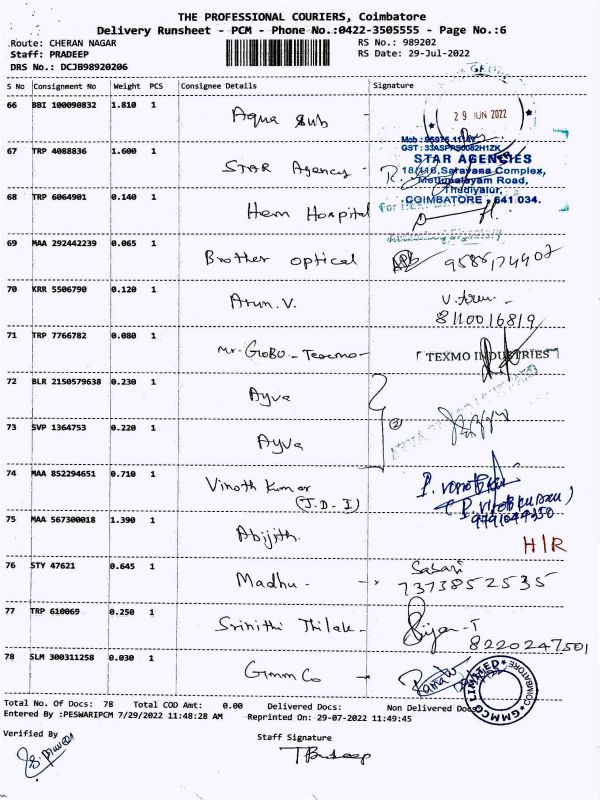 THE PROFESSIONAL COURIERS, Coimbatore
Delivery Runsheet - PCM - Phone No.:0422-3505555 - Page No.:6
Route: CHERAN NAGAR
RS No.: 989202
Staff: PRADEEP
RS Date: 29-Jul-2022
DRS No.: DCJB98920206
S No Consignment No Weight PCS Consignee Details Signature
66 BBI 100090832 1.810 1 Aqua sub
29 JUN 2022
67 TRP 4088836 1.600 1 STAR Agency -
GST : 33ASPPS0082H1ZK
STAR AGENCIES
18/116, Saravana Complex,
Mettupalayam Road,
Thudiyalur,
COIMBATORE - 641 034.
68 TRP 6064901 0.140 1 Hem Hospital
69 MAA 292442239 0.065 1 Brother optical
70 KRR 5506790 0.120 1 Arun.V. V. Arun -
8110016819
71 TRP 7766782 0.080 1 Mr. GloBO - Texmo - TEXMO INDUSTRIES
72 BLR 2150579638 0.230 1 Ayva
2
73 SVP 1364753 0.220 1 Ayva
74 MAA 852294651 0.710 1 Vinoth Kumar
(J.D-I)
75 MAA 567300018 1.390 1 Abijith
H/R
76 STY 47621 0.645 1 Madhu - Sabari
7373852535
77 TRP 610069 0.250 1 Srinithi Thilak -
8220247501
78 SLM 300311258 0.030 1 Gmm Co
GMMCO LIMITED COIMBATORE
Total No. Of Docs: 78 Total COD Amt: 0.00 Delivered Docs: Non Delivered Docs
Entered By :PESWARIPCM 7/29/2022 11:48:28 AM Reprinted On: 29-07-2022 11:49:45
Verified By
Staff Signature